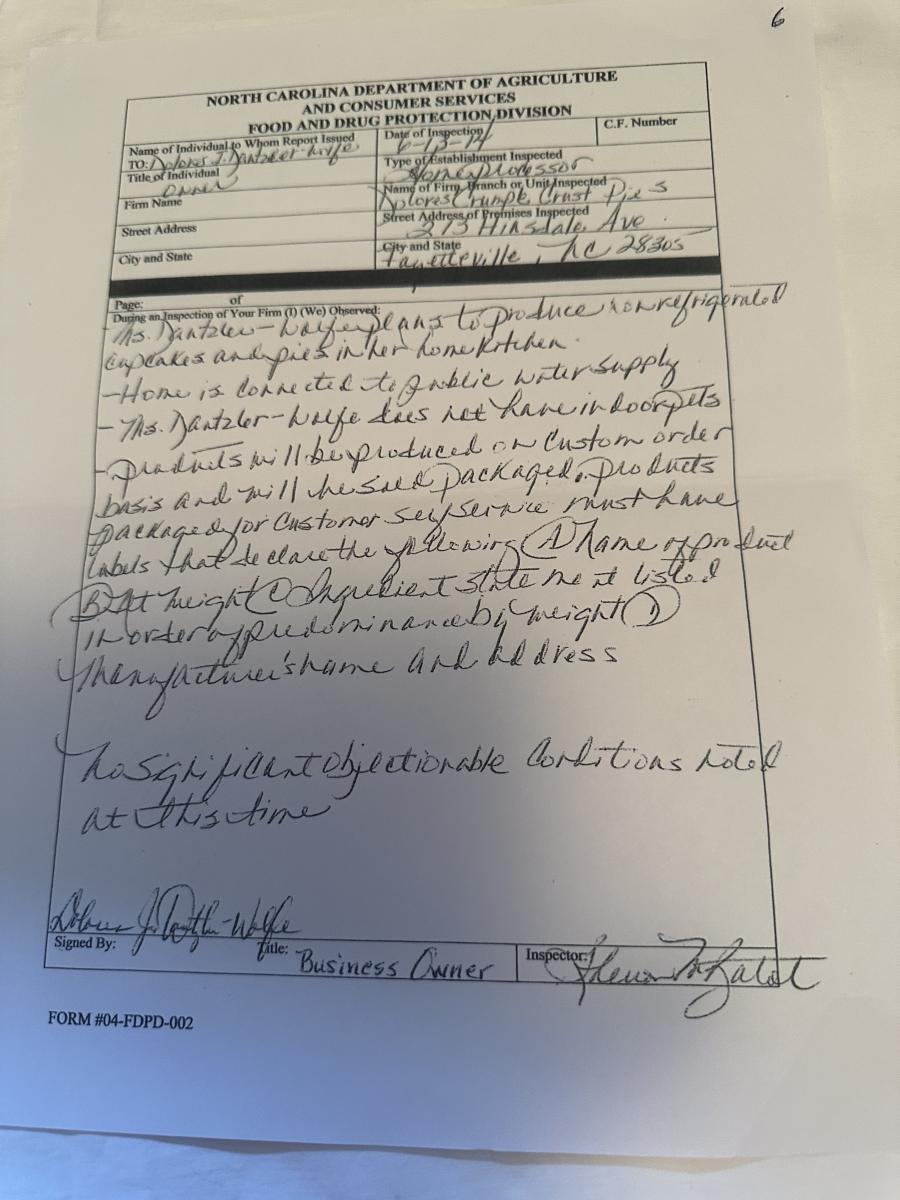 6
NORTH CAROLINA DEPARTMENT OF AGRICULTURE
AND CONSUMER SERVICES
FOOD AND DRUG PROTECTION DIVISION
Name of Individual to Whom Report Issued
TO: Dolores J. Dantzler-Wolfe
Date of Inspection
6-13-14
C.F. Number
Title of Individual
owner
Type of Establishment Inspected
Home processor
Firm Name
Name of Firm, Branch or Unit Inspected
Dolores Crumple Crust Pies
Street Address
Street Address of Premises Inspected
273 Hinsdale Ave
City and State
City and State
Fayetteville, NC 28305
Page: of
During an Inspection of Your Firm (I) (We) Observed:
Ms. Dantzler-Wolfe plans to produce nonrefrigerated
cupcakes and pies in her home kitchen.
- Home is connected to public water supply
- Ms. Dantzler-Wolfe does not have indoor pets
- products will be produced on custom order
basis and will be sold packaged. products
packaged for customer self service must have
labels that declare the following (A) Name of product
(B) Net weight (C) Ingredient statement listed
in order of predominance by weight (D)
Manufacturer's name and address
No significant objectionable conditions noted
at this time
Dolores J. Dantzler-Wolfe
Signed By:
Title:
Business Owner
Inspector:
FORM #04-FDPD-002